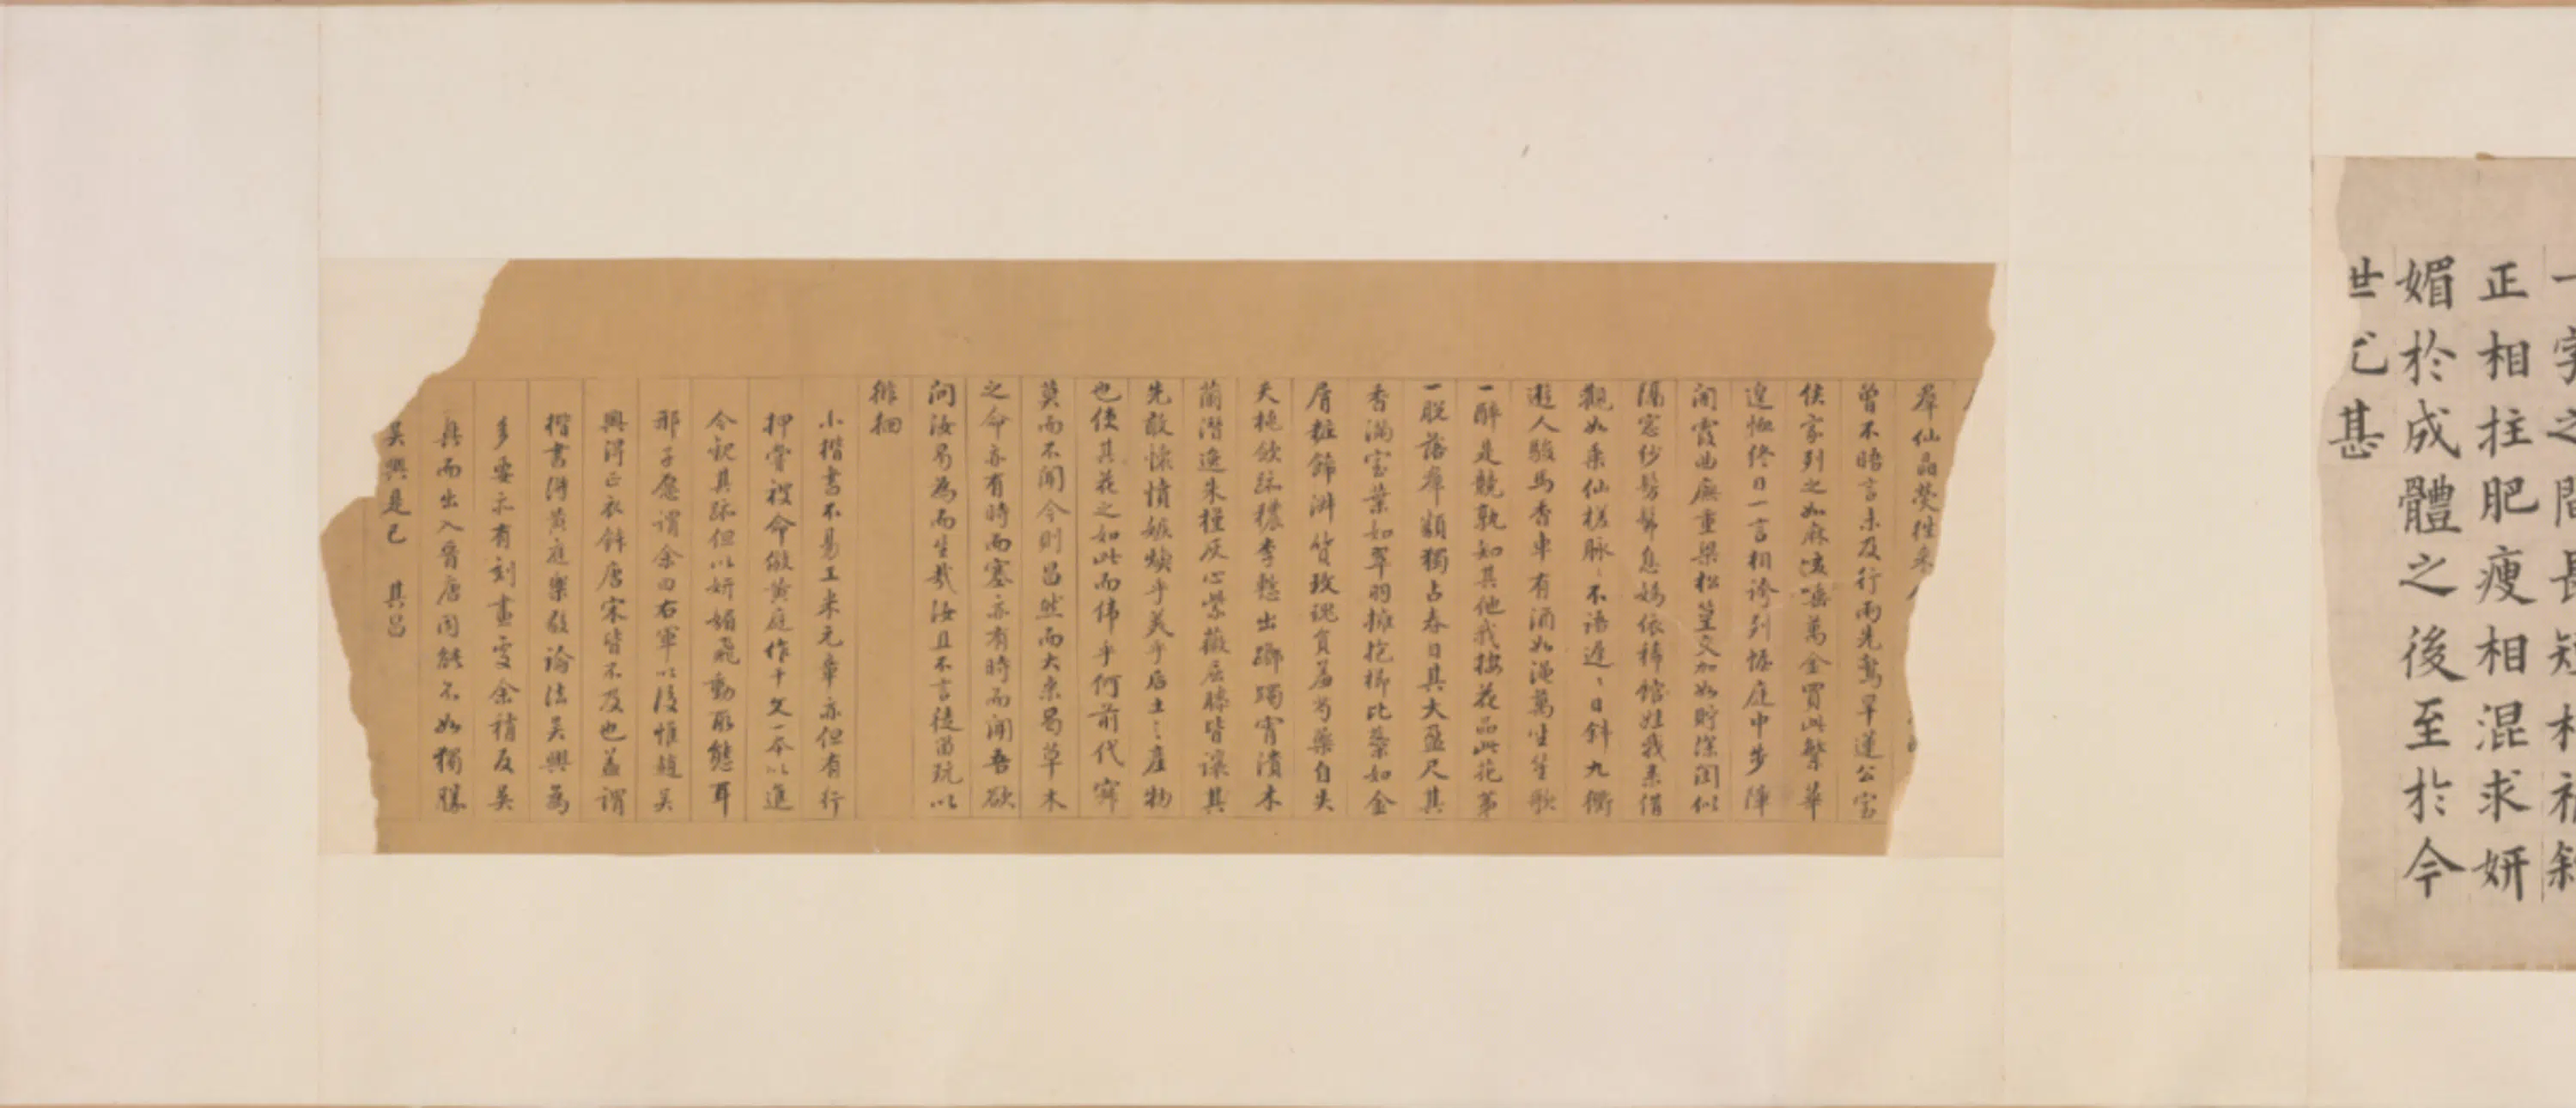 一字之間長短相補斜
正相拄肥瘦相混求妍
媚於成體之後至於今
世尤甚
羣仙晶熒往來
曾不晤言未及行雨先驚旱蓮公室
侯家列之如麻咳唾萬金買此繁華
遑恤終日一言相誇列幄庭中步障
開霞曲廡重梁松篁交加如貯深閨似
隔窓紗髣髴息嬀依稀館娃我來借
觀如乘仙槎脉〻不語遲〻日斜九衢
遊人駿馬香車有酒如澠萬坐笙歌
一醉是競孰知其他我按花品此花第
一脫落羣類獨占春日其大盈尺其
香滿室葉如翠羽擁抱櫛比蘂如金
屑粧飾淋皆玫瑰負羞芍藥自失
夭桃斂跡穠李慙出躑躅宵潰木
蘭潛逸朱槿灰心紫薇屈膝皆讓其
先敢懷憤嫉煥乎美乎后土之產物
也使其花之如此而偉乎何前代寂
莫而不聞今則昌然而大來曷草木
之命亦有時而塞亦有時而開吾欲
問汝曷為而生哉汝且不言徒留玩以
徘徊
小楷書不易工米元章亦但有行
押嘗被命倣黃庭作千文一本以進
今觀其跡但以妍媚飛動取態耳
邢子愿謂余曰右軍以後惟趙吳
興得正衣鉢唐宋皆不及也蓋謂
楷書得黃庭樂毅論法吳興為
多要亦有刻畫處余稍及吳
興而出入晉唐間能不如獨勝
吳興是已 其昌